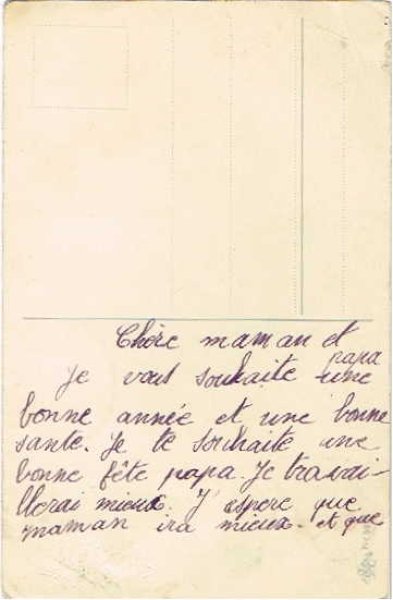 Chère maman et
papa
Je vous souhaite une
bonne année et une bonne
santé. Je te souhaite une
bonne fête papa. Je travai-
llerai mieux. J'espere que
maman ira mieux. et que